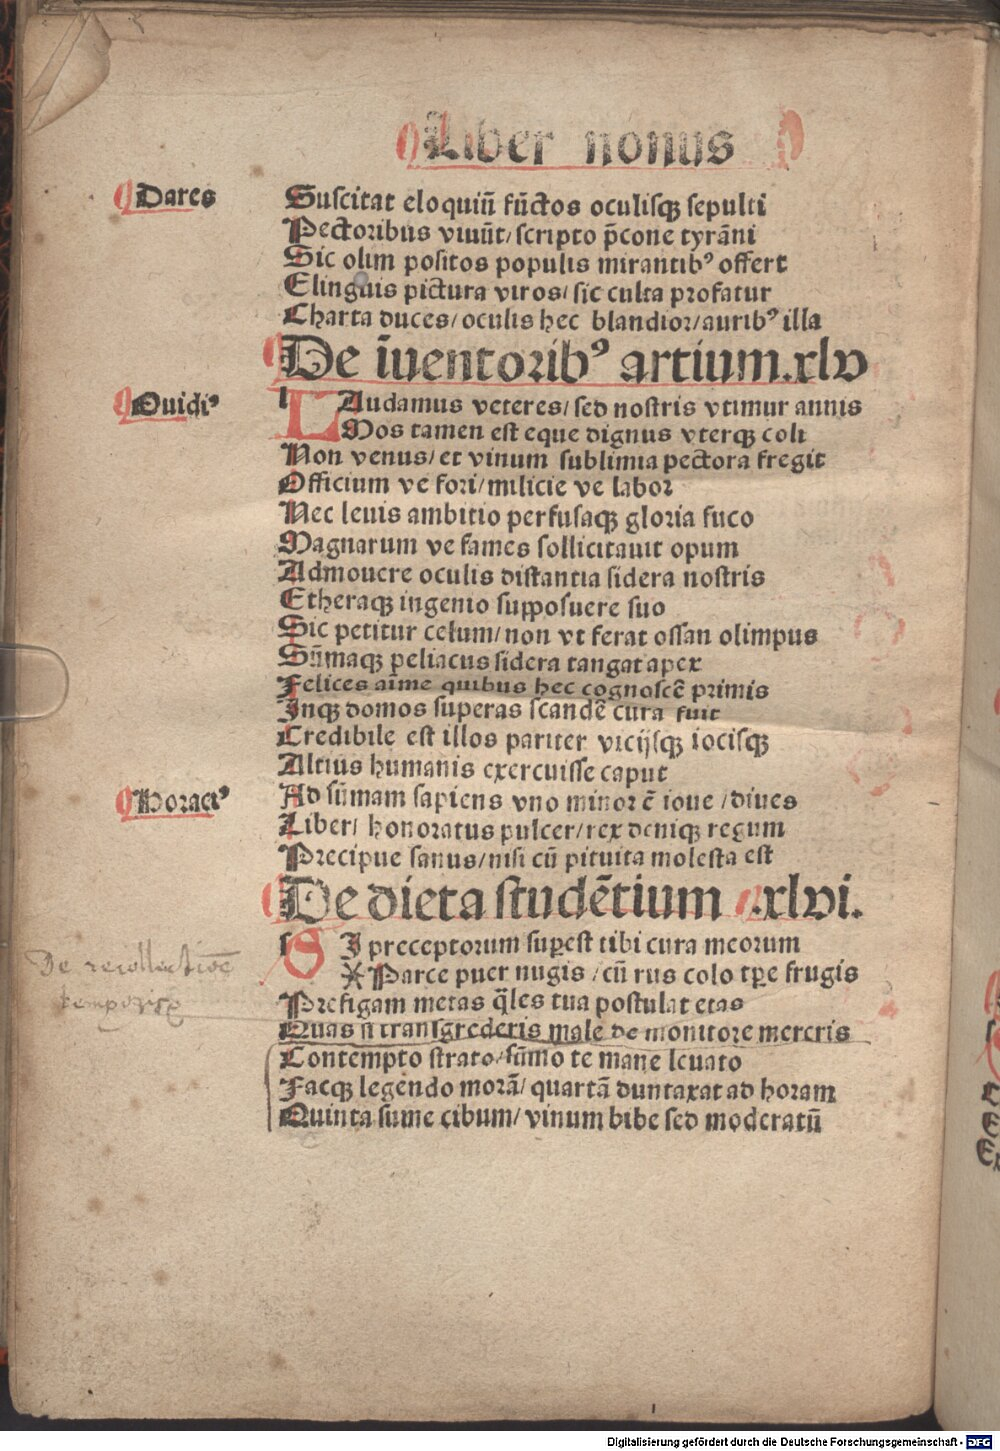 Liber nonus
Dares
Suscitat eloquiū fūctos oculisqꝫ sepulti
Pectoribus viuūt/ scripto p̄cone tyrāni
Sic olim positos populis mirantibꝰ offert
Elinguis pictura viros/ sic culta profatur
Charta duces/ oculis hec blandior/ auribꝰ illa
De īuentoribꝰ artium.xlv
Ouidiꝰ
l LAudamus veteres/ sed nostris vtimur annis
Mos tamen est eque dignus vterqꝫ coli
Non venus/ et vinum sublimia pectora fregit
Officium ve fori/ milicie ve labor
Nec leuis ambitio perfusaqꝫ gloria fuco
Magnarum ve fames sollicitauit opum
Admouere oculis distantia sidera nostris
Etheraqꝫ ingenio supposuere suo
Sic petitur celum/ non vt ferat ossan olimpus
Sūmaqꝫ peliacus sidera tangat apex
Felices aīme quibus hec cognoscē primis
Inqꝫ domos superas scandē cura fuit
Credibile est illos pariter vicijsqꝫ iocisqꝫ
Altius humanis exercuisse caput
Horaciꝰ
Ad sūmam sapiens vno minor ē ioue /diues
Liber/ honoratus pulcer/ rex deniqꝫ regum
Precipue sanus/ nisi cū pituita molesta est
De dieta studētium .xlvi.
s SI preceptorum suꝑest tibi cura meorum
Parce puer nugis /cū rus colo tꝑe frugis
De recollectiōe
temporꝝ
Prefigam metas q̄les tua postulat etas
Quas si transgrederis male de monitore mereris
Contempto strato/ sūmo te mane leuato
Facqꝫ legendo morā/ quartā duntaxat ad horam
Quinta sume cibum/ vinum bibe sed moderatū
Digitalisierung gefördert durch die Deutsche Forschungsgemeinschaft - DFG